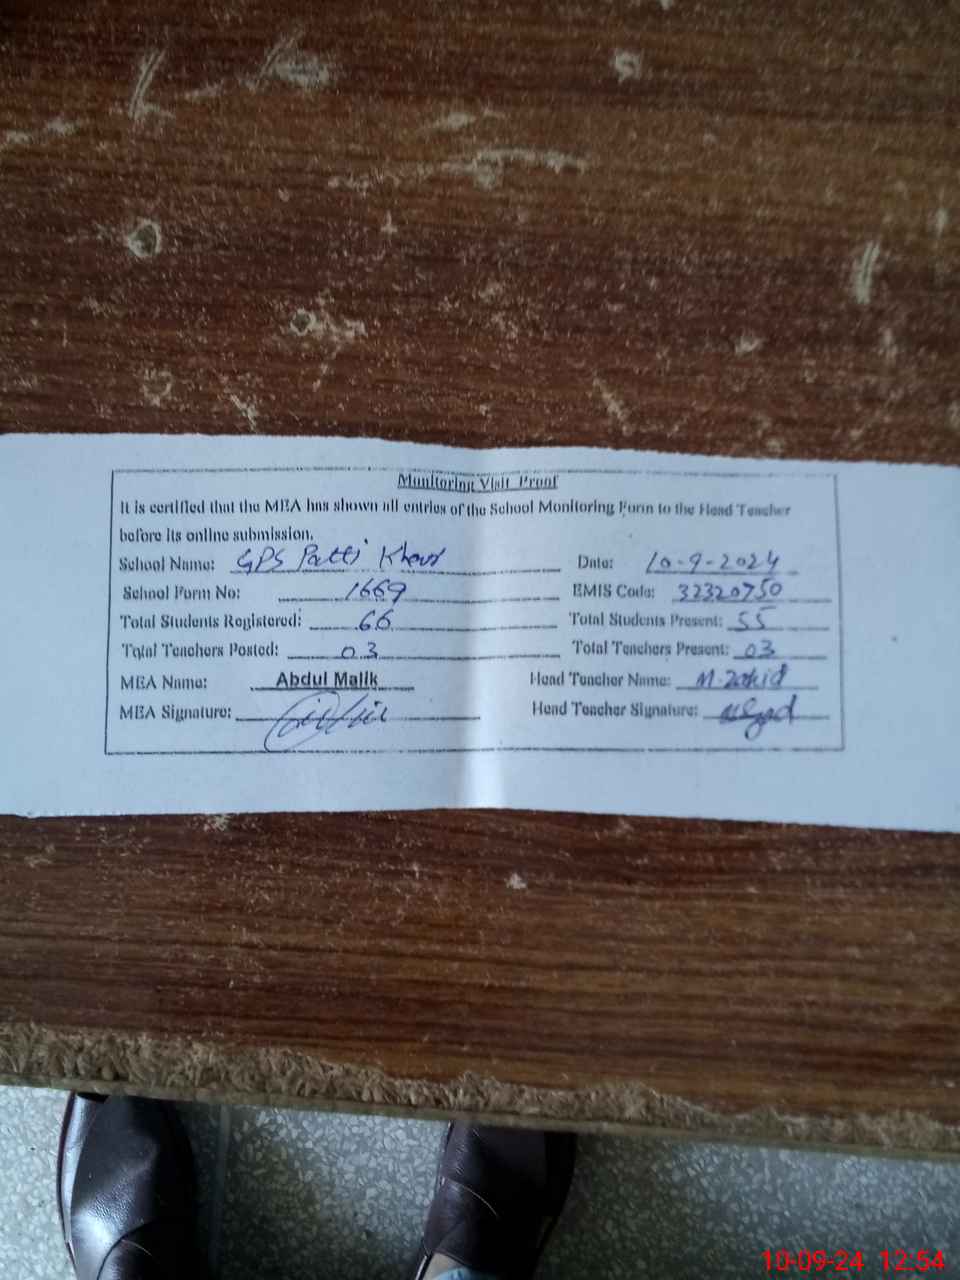 Monitoring Visit Proof
It is certified that the MEA has shown all entries of the School Monitoring Form to the Head Teacher
before its online submission.
School Name: GPS Patti Date: 10-9-2024
School Form No: 1669 EMIS Code: 32320750
Total Students Registered: 66 Total Students Present: 55
Total Teachers Posted: 03 Total Teachers Present: 03
MEA Name: Abdul Malik Head Teacher Name: M. Zahid
MEA Signature: Head Teacher Signature:
10-09-24 12:54